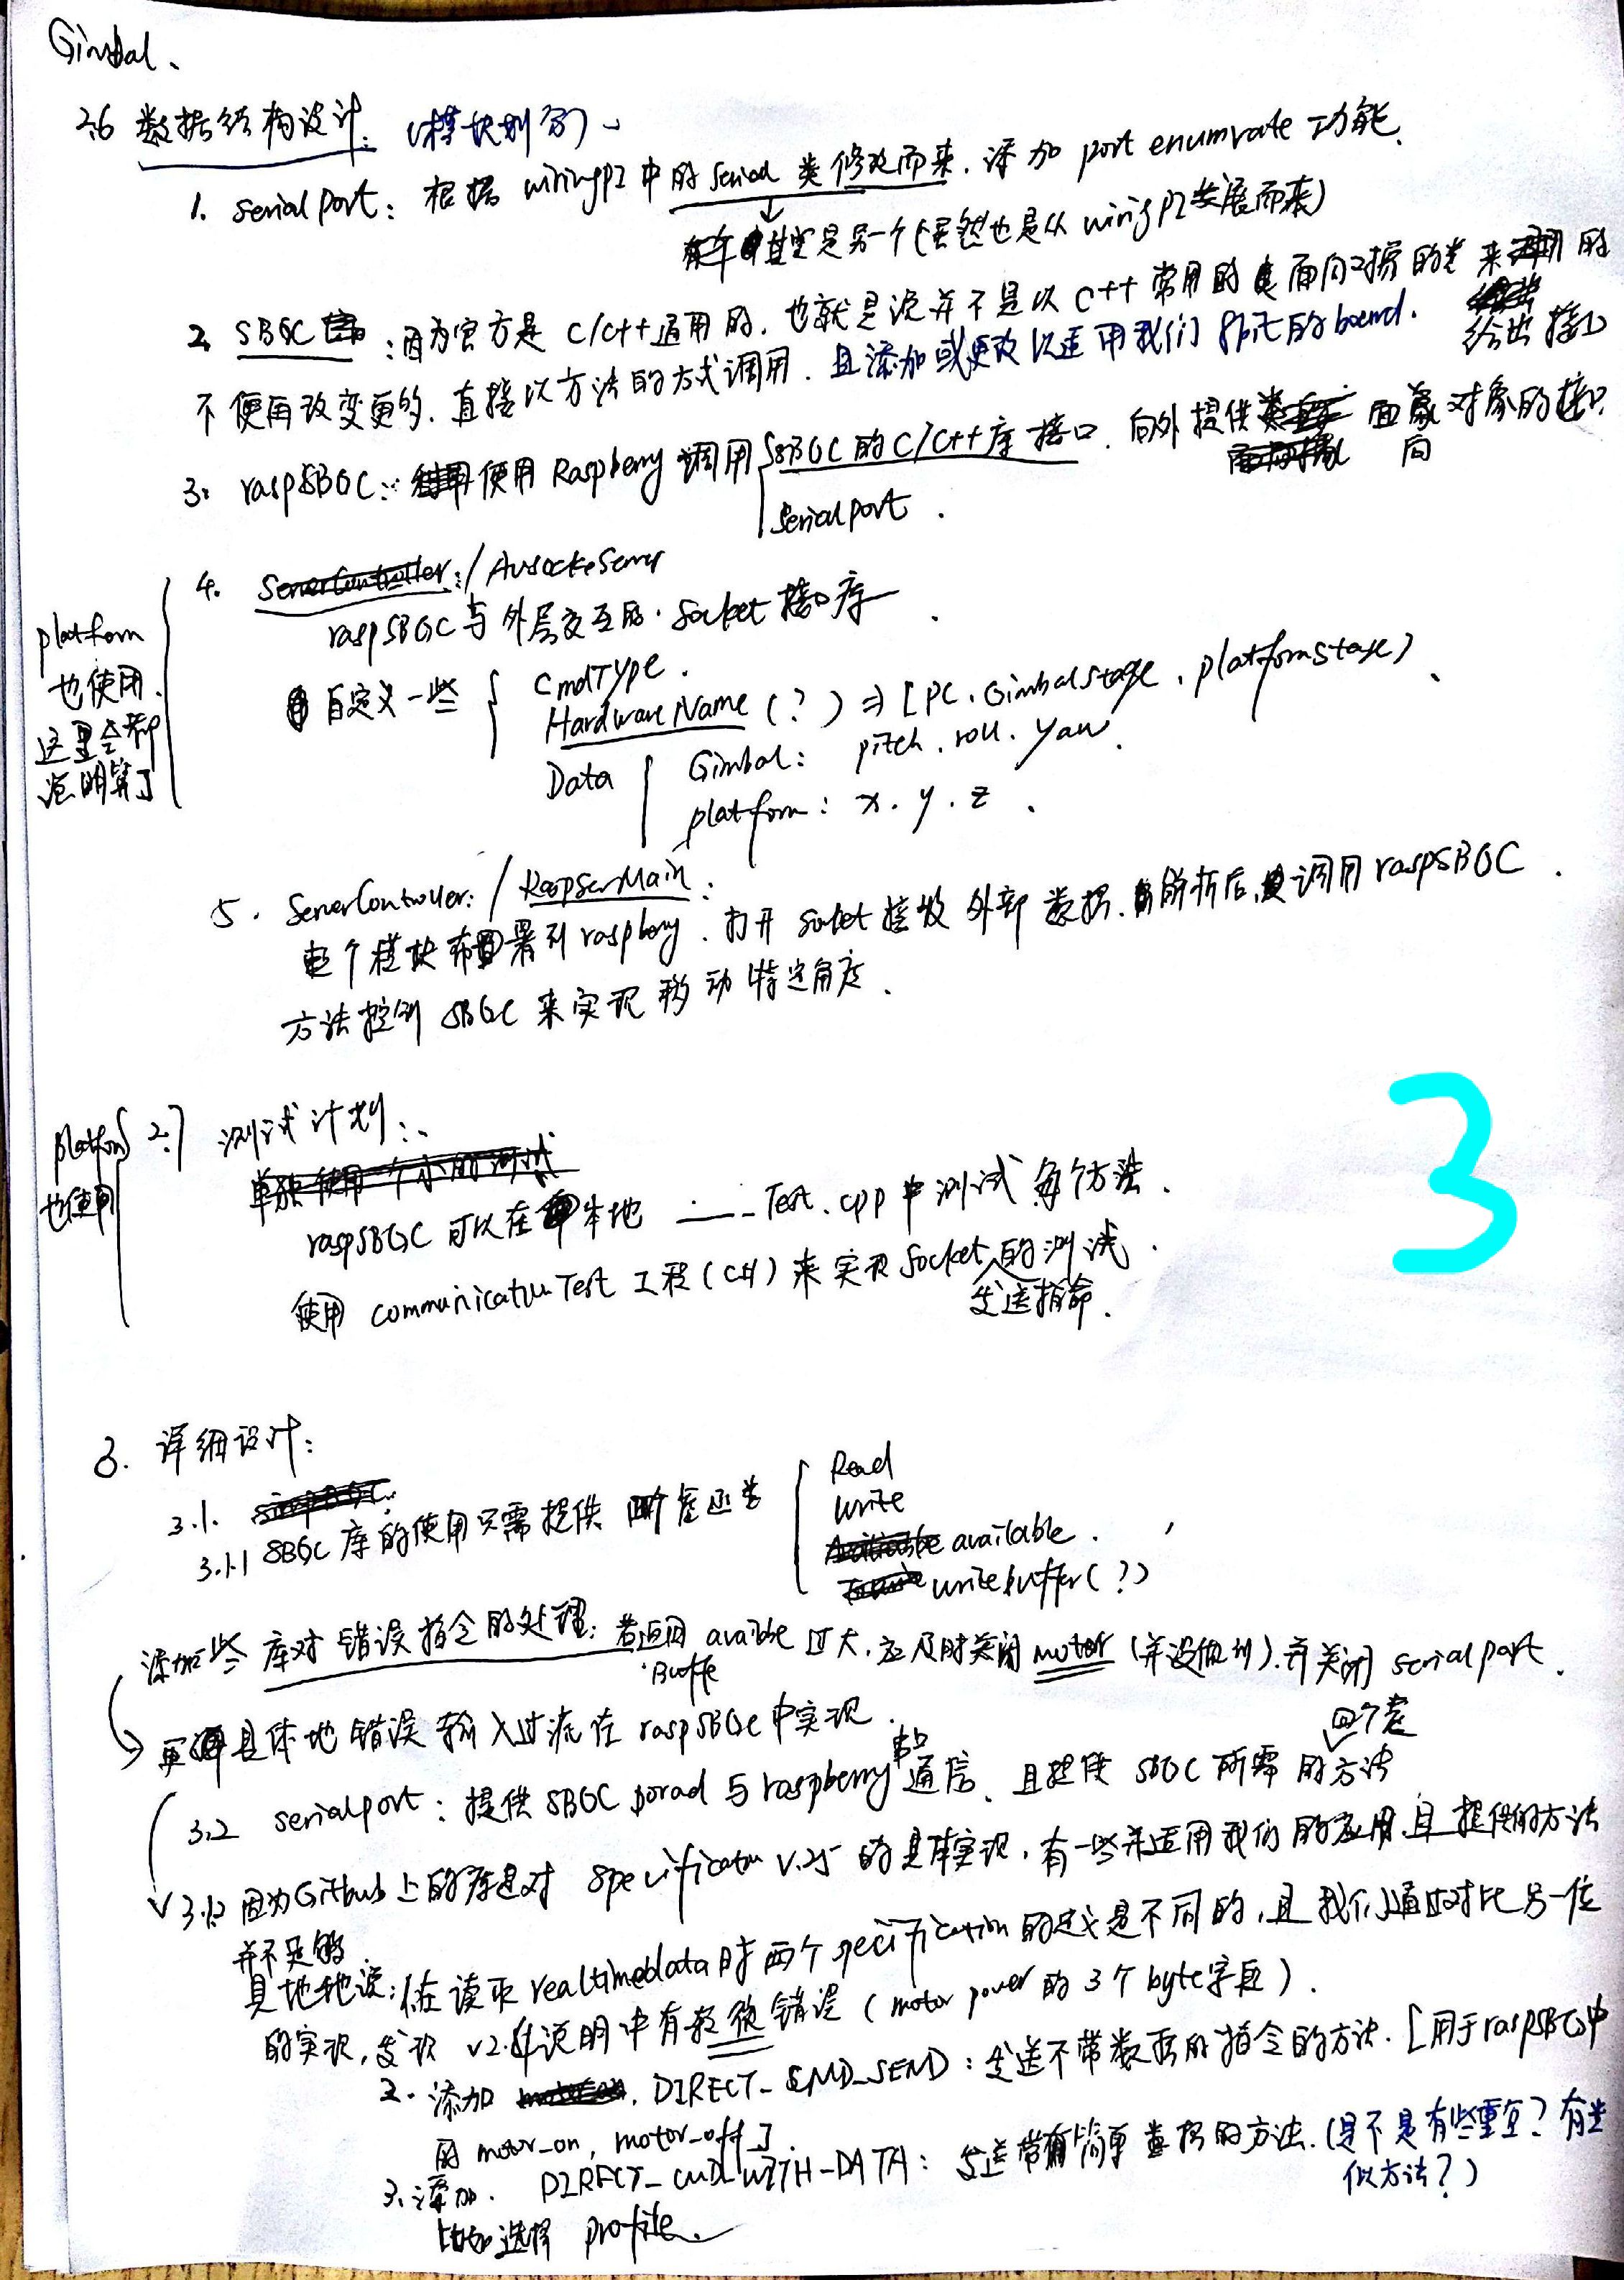 Gimbal、
2.6 数据结构设计：（模块划分）、
1. serialport：根据 wiringPI 中的 serial 类修改而来，添加 port enumrate 功能.
其实是另一个(虽然也是从 wiringPI发展而来)
2. SBGC ：因为官方是 C/C++通用的，也就是说并不是以 C++ 常用的 面向对象的类 来 的
给出接口
不便再改变更的，直接以方法的方式调用. 且添加或更改以适用我们 8bit的 board.
3: raspSBGC: 使用 Raspberry 调用 SBGC 的 C/C++库接口，向外提供 面向对象的接口
Serialport .
4. /
raspSBGC与外层交互的 · Socket 接口库 .
platform
也使用.
这里全部
说明算了
自定义一些 CmdType.
HardwareName (?) ⇒ [PC. GimbalStage. platformStage)
Data Gimbal: pitch. roll. yaw.
platform: x. y. z .
5. ServerController: / RaspSerMain:
整个模块布署到 raspberry. 打开 socket 接收外部数据，解析后，调用 raspSBGC .
方法控制 SBGC 来实现移动特定角度.
platform
也使用
2.7 测试计划：
raspSBGC 可以在本地 ——— Test.cpp 中测试每个方法.
使用 communicationTest 工程(C#) 来实现 Socket 的测试.
发送指命.
3. 详细设计：
3.1.
3.1.1 SBGC 库的使用只需提供 四个
Read
write
available.
writebuffer(?)
添加些库对错误指令的处理：若返回 availble 过大，应及时关闭 motor (并没做到).并关闭 serialport.
Buffe
更具体地错误输入过滤在 raspSBGC中实现.
3.2 serialport：提供 SBGC borad 与 raspberry 通信、且提供 SBGC 所需的方法
3.1.2 因为Github上的库是对 specification V.25 的具体实现，有一些并适用我们的应用.且提供的方法
并不足够.
具地地说：在读取 realtimedata时 两个 specification 的定义是不同的，且我们通过对比另一位
的实现，发现 v2.4说明中有 错误（motor power 的 3个 byte字段）.
2. 添加 . DIRECT_CMD_SEND：发送不带数据的指令的方法. [用于raspSBGC中
的 motor_on, motor_off]
3. 添加. DIRECT_CMD_WITH_DATA：发送带有简单数据的方法.(是不是有些重复？有类
似方法？)
比如选择 profile.
3